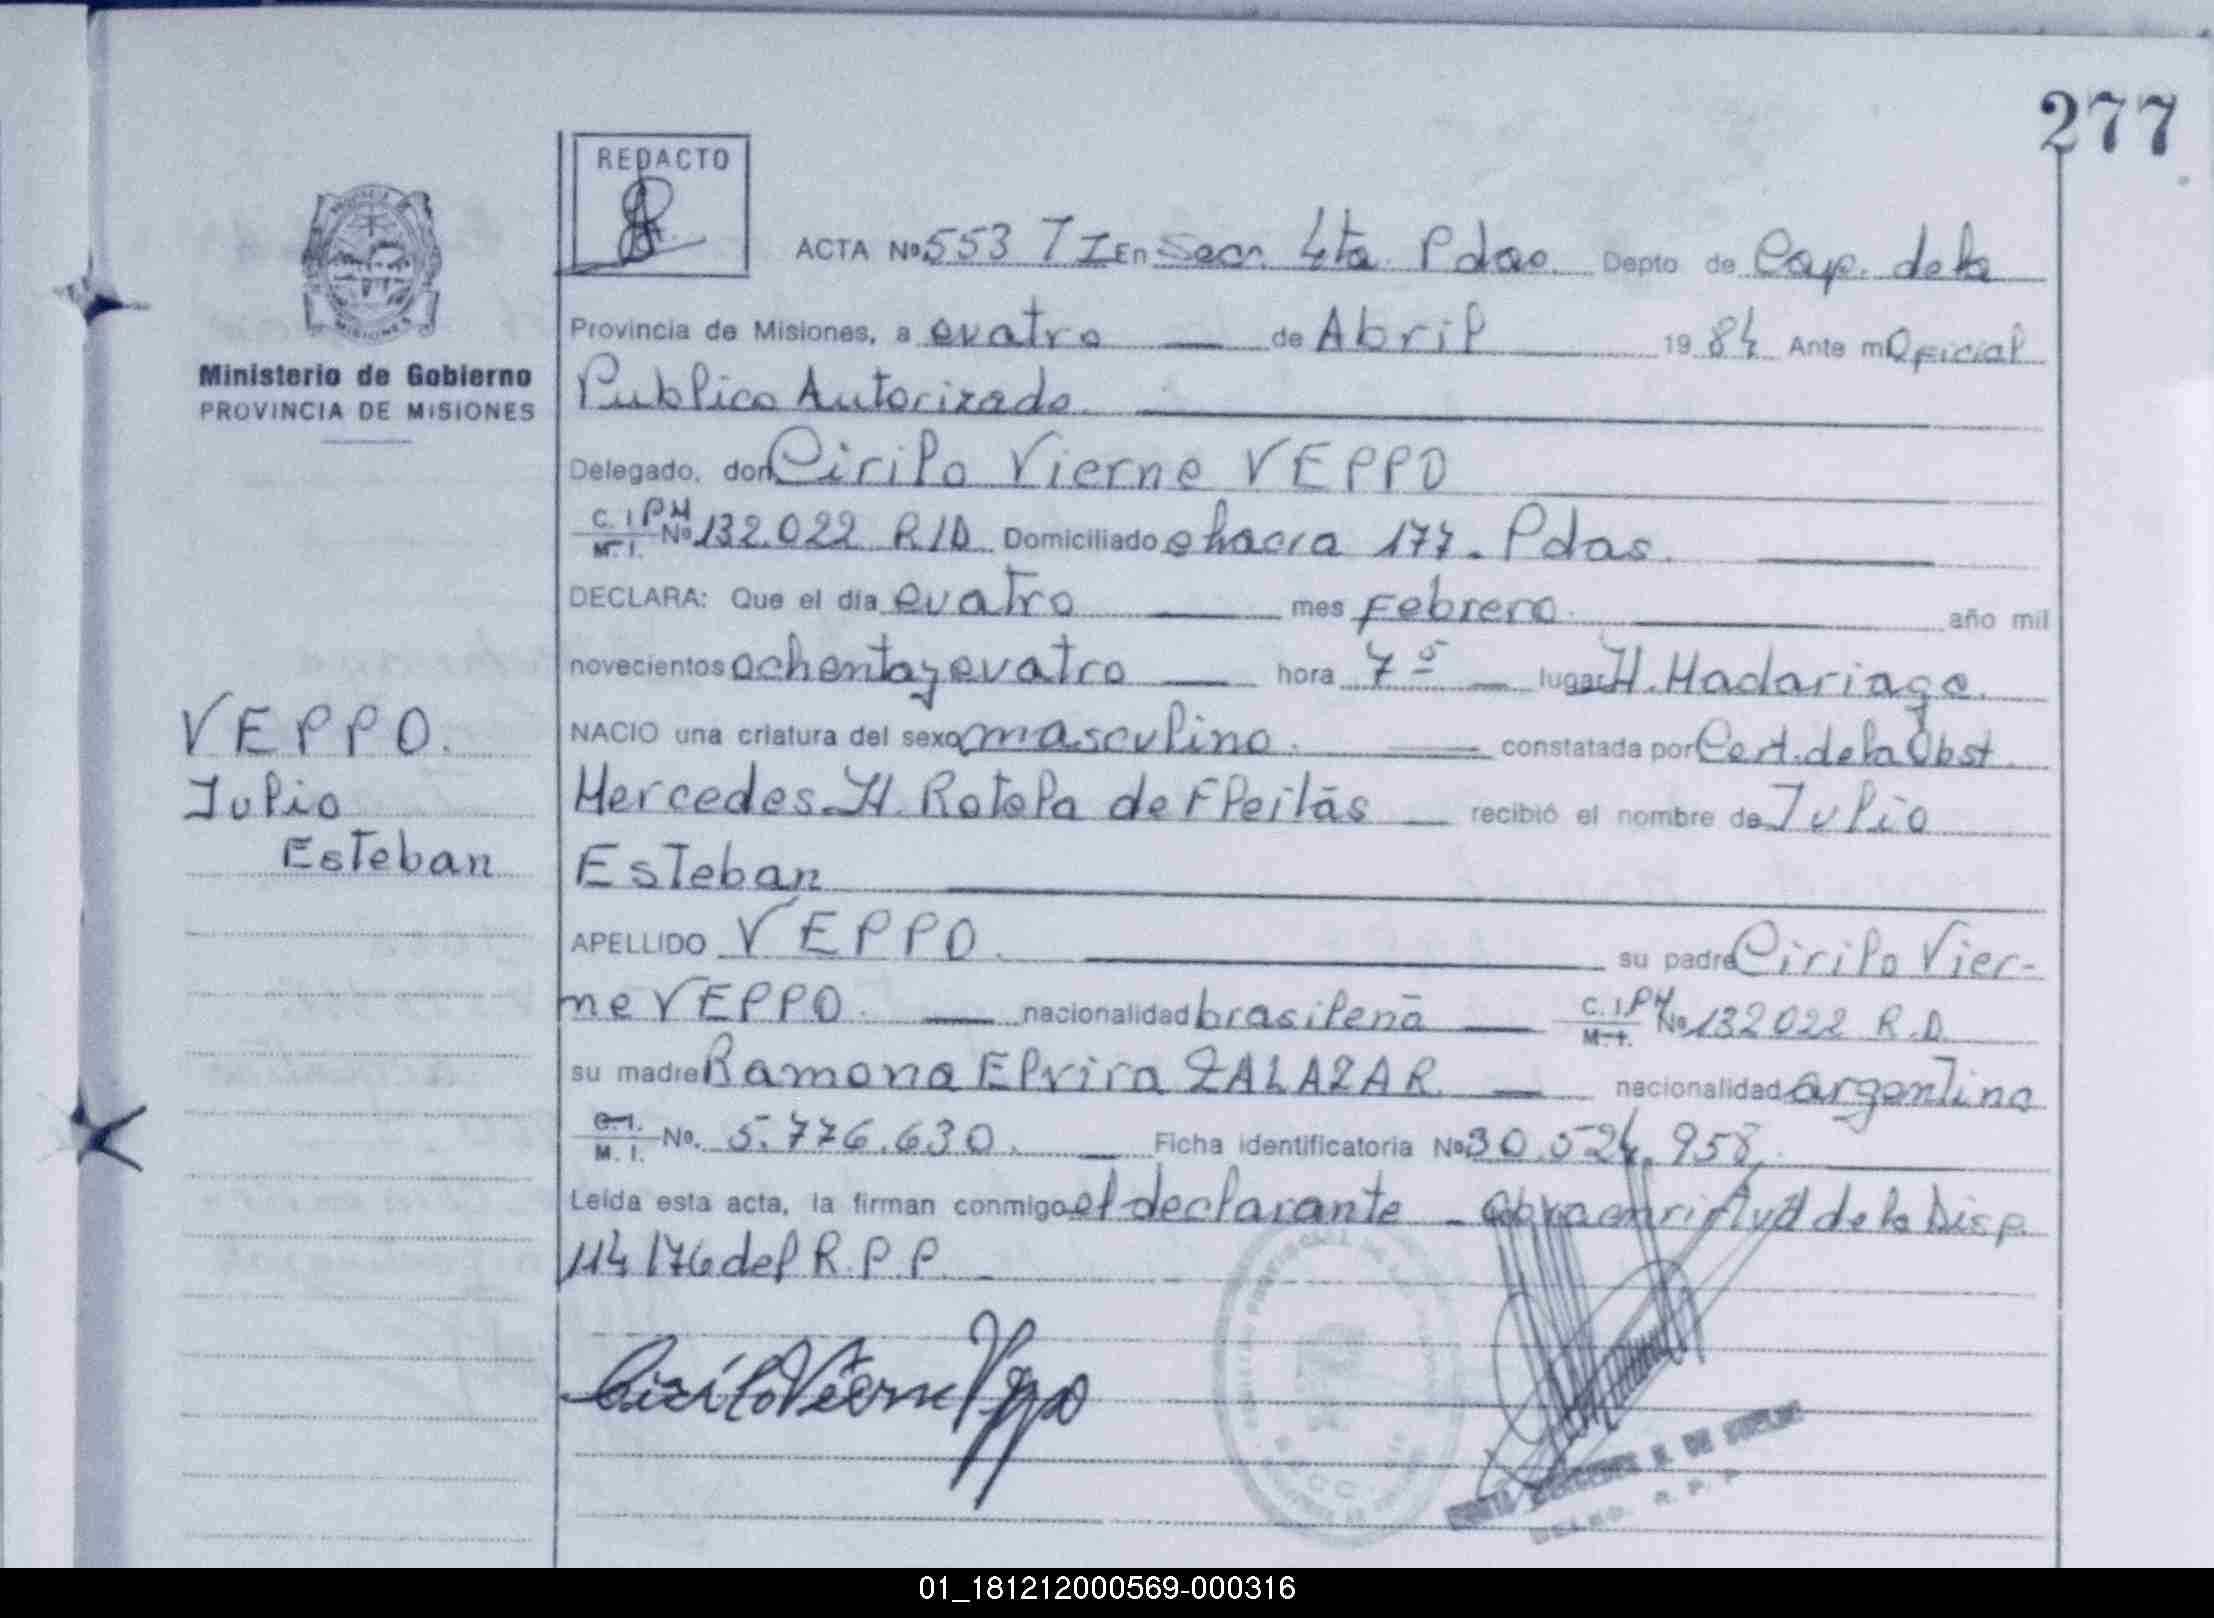 277
REDACTO
ACTA Nº 553 T I En Secr. 4ta. Pdas. Depto de Cap. de la
Provincia de Misiones, a cuatro de Abril 19 84 Ante mi Oficial
Publico Autorizado.
Delegado, don Cirilo Vierne VEPPO
C. I. M. I. PM Nº 132.022 R/D Domiciliado chacra 177. Pdas.
DECLARA: Que el día cuatro mes Febrero. año mil
novecientos ochenta y cuatro hora 7º lugar H. Madariaga.
NACIO una criatura del sexo masculino. constatada por Cert. de la Obst.
Mercedes H. Rotela de Fleitãs recibió el nombre de Julio
Esteban
APELLIDO VEPPO. su padre Cirilo Vier-
ne VEPPO. nacionalidad brasileña C. I. M. I. PM Nº 132022 R.D.
su madre Ramona Elvira ZALAZAR nacionalidad argentina
C. I. M. I. No. 5.776.630. Ficha identificatoria Nº 30.524.958.
Leída esta acta, la firman conmigo el declarante de la Disp.
114/76 del R.P.P.
Cirilo Vierne Veppo
PROVINCIA DE
MISIONES
Ministerio de Gobierno
PROVINCIA DE MISIONES
VEPPO.
Julio
Esteban
01_181212000569-000316